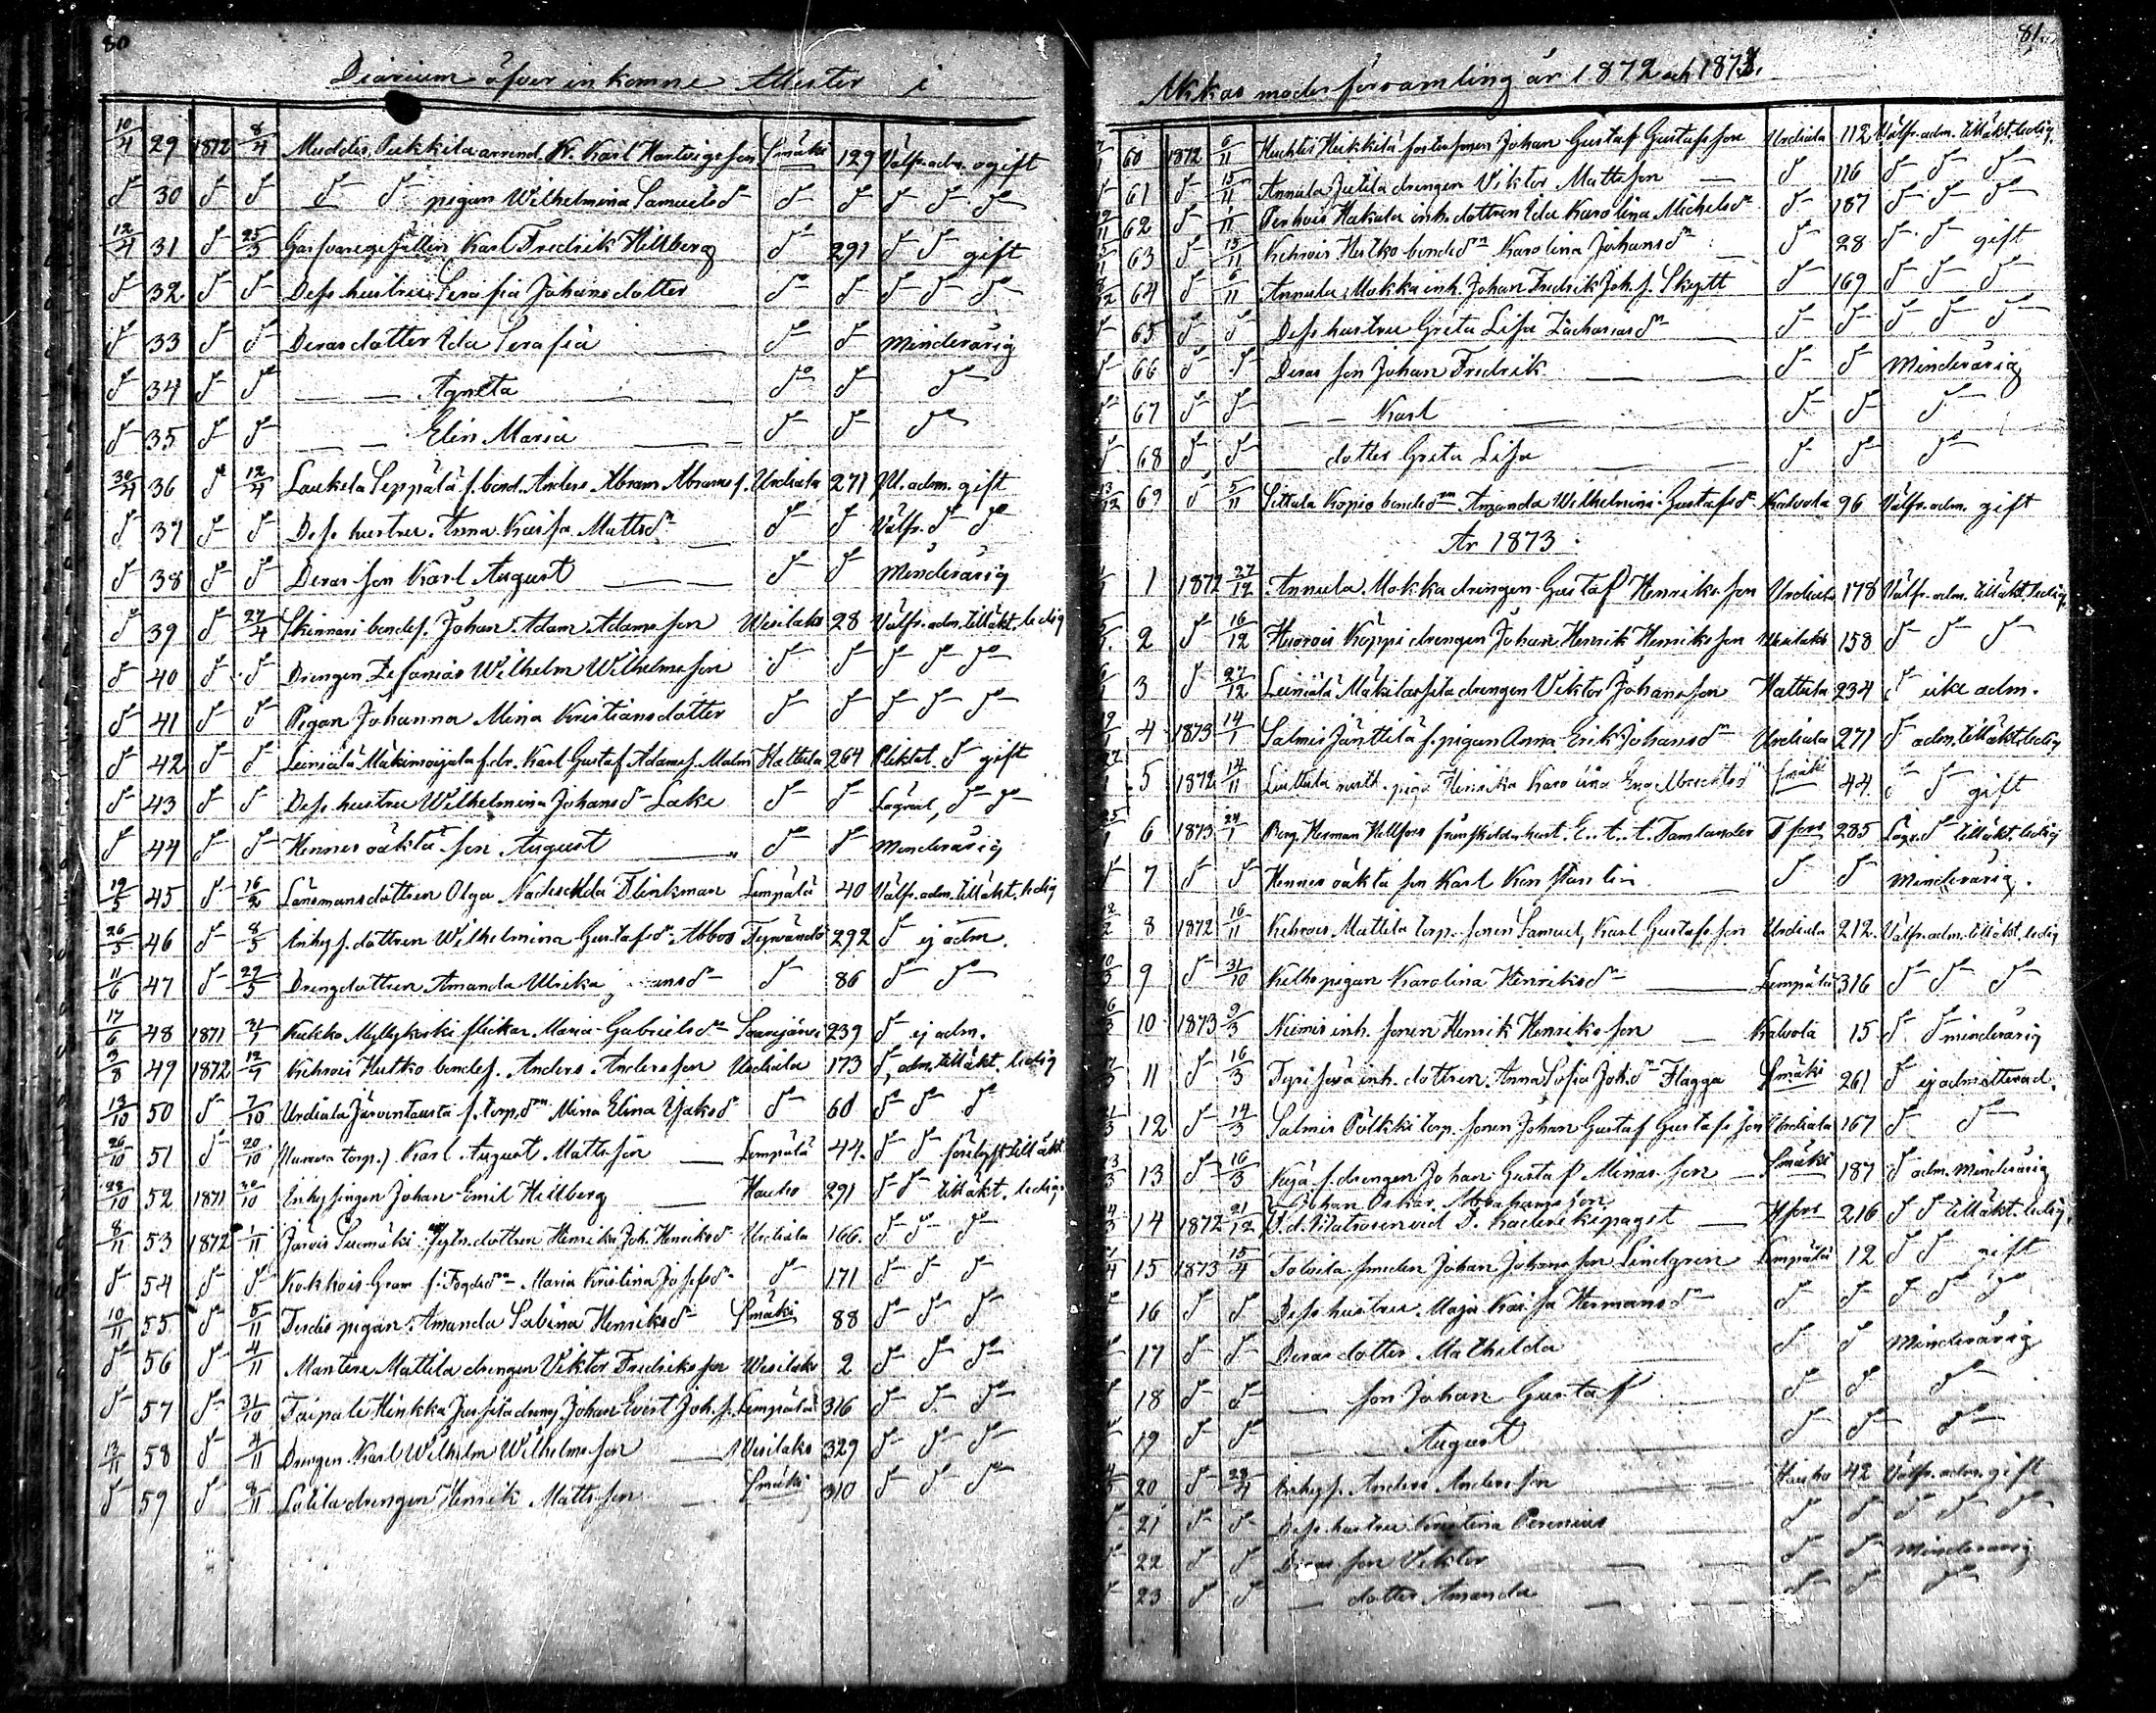 80
Diarium öfver inkomne Attester i
10/4 29 1872 8/4 Muddis Pukkila arrend. K. Karl Hartvigsson Smäki 129 Välfr. adm. ogift
d:o 30 d:o d:o d:o d:o pigan Wilhelmina Samuelsd:r d:o d:o d:o d:o d:o
12/4 31 d:o 25/3 Garfvaregesällen Karl Fredrik Hillberg d:o 291 d:o d:o gift
d:o 32 d:o d:o Dess hustru Serafia Johansdotter d:o d:o d:o d:o d:o
d:o 33 d:o d:o Deras dotter Ida Serafia d:o d:o Minderårig
d:o 34 d:o d:o — — Agneta d:o d:o d:o
d:o 35 d:o d:o — — Elin Maria d:o d:o d:o
30/4 36 d:o 12/4 Laukela Seppälä f. bond. Anders Abram Abramss. Urdiala 271 Vl. adm. gift
d:o 37 d:o d:o Dess hustru Anna Kaisa Mattsd:r d:o d:o Välfr. d:o d:o
d:o 38 d:o d:o Deras son Karl August d:o d:o Minderårig
d:o 39 d:o 27/4 Skinnari bondes. Johan Adam Adamsson Wesilaks 28 Välfr. adm. till äkt. ledig
d:o 40 d:o d:o Drengen Zefanias Wilhelm Wilhelmsson d:o d:o d:o d:o d:o
d:o 41 d:o d:o Pigan Johanna Mina Kristiansdotter d:o d:o d:o d:o d:o
d:o 42 d:o d:o Leiniälä Mäkimaijala f. dr. Karl Gustaf Adamss. Malm Hattula 264 Pliktat. d:o gift
d:o 43 d:o d:o Dess hustru Wilhelmina Johansd:r Lake d:o d:o Lägrad, d:o d:o
d:o 44 d:o d:o Hennes oäkta son August d:o d:o Minderårig
19/5 45 d:o 16/2 Länsmansdottren Olga Nadeschda Flinkman Lempälä 40 Välfr. adm. till äkt. ledig
26/5 46 d:o 8/5 Inhys. dottren Wilhelmina Gustafsd:r Abbos Tyrvändö 292 d:o ej adm.
11/6 47 d:o 27/5 Drengdottren Amanda Ulrika d:o 86 d:o d:o
17/6 48 1871 21/7 Kukko Myllykoski flickan Maria Gabrielsd:r Saarijärvi 239 d:o ej adm.
3/8 49 1872 12/7 Kehrois Heitko bondes. Anders Andersson Urdiala 173 d:o adm. till äkt. ledig
13/10 50 d:o 7/10 Urdiala Järventausta f. torp.d:n Mina Elina Isaksd:r d:o 60 d:o d:o d:o
26/10 51 d:o 20/10 torp.s. Karl August Mattsson Lempälä 44. d:o d:o förlyst till äkt.
28/10 52 1871 30/10 Inhysingen Johan Emil Hillberg Hauho 291 d:o d:o till äkt. ledig
8/11 53 1872 1/11 Järvis Suomäki dottren Henrika Joh. Henriksd:r Urdiala 166. d:o d:o d:o
d:o 54 d:o d:o Kokkois Gram f. Maria Kristina Josefsd:r d:o 171 d:o d:o d:o
10/11 55 d:o 8/11 Terdis pigan Amanda Sabina Henriksd:r Smäki 88 d:o d:o d:o
d:o 56 d:o 4/11 Mantere Mattila drengen Viktor Fredriksson Wesilaks 2 d:o d:o d:o
d:o 57 d:o 31/10 Taipale Hinkka Jussila dreng Johan Evert Joh.s. Lempälä 316 d:o d:o d:o
12/11 58 d:o 4/11 Drengen Karl Wilhelm Wilhelmsson Wesilaks 329 d:o d:o d:o
d:o 59 d:o 9/11 Lotila drengen Henrik Mattsson Smäki 310 d:o d:o d:o
81.
Akkas moderförsamling år 1872 och 1873.
60 1872 6/11 Huhtis Heikkilä fostersonen Johan Gustaf Gustafsson Urdiala 112 Välfr. adm. till äkt. ledig.
61 d:o 15/11 Annula Jutila drengen Viktor Mattsson d:o 116 d:o d:o d:o
62 d:o 11 Perhois Hakala inh. dottren Ida Karolina Michelsd:r d:o 187 d:o d:o d:o
63 d:o 15/11 Kehrois Heitko bonded:n Karolina Johansd:r d:o 28 d:o d:o gift
64 d:o 6/11 Annula Mokka inh. Johan Fredrik Joh.s. Skytt d:o 169 d:o d:o d:o
65 d:o d:o Dess hustru Greta Lisa Zachariasd:r d:o d:o d:o d:o d:o
66 d:o d:o Deras son Johan Fredrik d:o d:o Minderårig
67 d:o d:o — — Karl d:o d:o d:o
68 d:o d:o dotter Greta Lisa d:o d:o d:o
69 d:o 5/11 Sittala Kopio bonded:n Amanda Wilhelmina Gustafsd:r Kalvola 96 Välfr. adm. gift
År 1873
1 1872 27/12 Annula Mokka drengen Gustaf Henriksson Urdiala 178 Välfr. adm. till äkt. ledig.
2 d:o 16/12 Huorois Köppi drengen Johan Henrik Henriksson Wesilaks 158 d:o d:o d:o
3 d:o 27/12 Leiniälä Mäkilassila drengen Viktor Johansson Hattula 234 d:o icke adm.
4 1873 14/1 Salmis Jänttilä f. pigan Anna Erika Johansd:r Urdiala 271 d:o adm. till äkt. ledig
5 1872 14/11 Liuttula piga Henrika Karolina Engelbrechtsd:r Smäki 44 d:o d:o gift
6 1873 24/1 Borg. Herman Hellfors frånskilda hust. E. A. A. Tamlander T:fors 285 Lägr. d:o till äkt. ledig
7 d:o d:o Hennes oäkta son Karl Konstantin d:o d:o Minderårig.
8 1872 16/11 Kehrois Mattila torp. sonen Samuel, Karl Gustafsson Urdiala 212. Välfr. adm. till äkt. ledig
9 d:o 31/10 Kelho pigan Karolina Henriksd:r Lempälä 316 d:o d:o d:o
10 1873 9/3 Niemis inh. sonen Henrik Henriksson Kalvola 15 d:o d:o minderårig
11 d:o 16/3 inh. dottren Anna Sofia Joh.d:r Flagga Smäki 261 d:o ej adm. attterad.
12 d:o 14/3 Salmis Pölkki torp. sonen Johan Gustaf Gustafsson Urdiala 167 d:o d:o
13 d:o 16/3 Kuja f. drengen Johan Gustaf Minasson Smäki 187 d:o adm. Minderårig
Johan Oskar Abrahamsson
14 1872 21/12 H:fors 216 d:o d:o till äkt. ledig
15 1873 15/4 Toivila smeden Johan Johansson Lindgren Lempälä 12 d:o d:o gift
16 d:o d:o Dess hustru Maja Kaisa Hermansd:r d:o d:o d:o d:o d:o
17 d:o d:o Deras dotter Mathilda d:o d:o Minderårig
18 d:o d:o — son Johan Gustaf d:o d:o d:o
19 d:o d:o — — August d:o d:o d:o
20 d:o 28/4 Inhys. Anders Andersson Hauho 42 Välfr. adm. gift
21 d:o d:o Dess hustru Kristina Perenius d:o d:o d:o d:o d:o
22 d:o d:o Deras son Viktor d:o d:o Minderårig
23 d:o d:o — dotter Amanda d:o d:o d:o